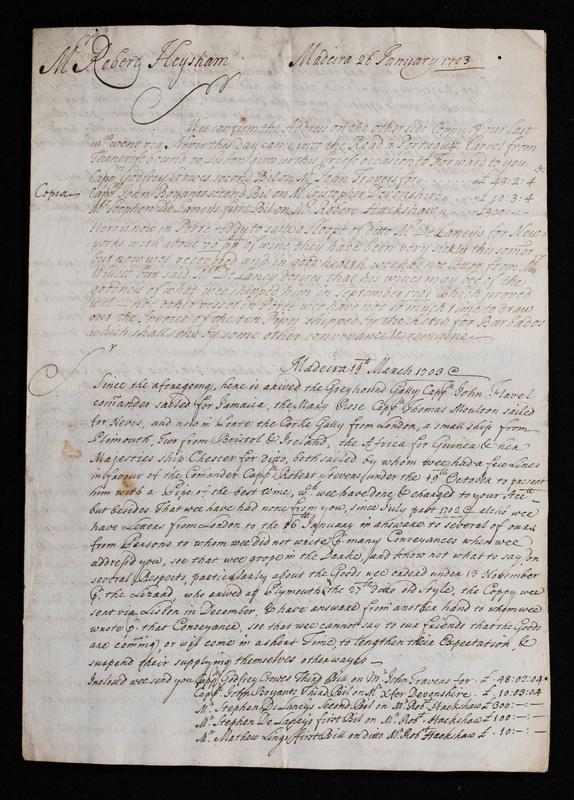 Mr Robert Heysham Madeira 26 January 1703
Sr
Wee confirme the Address on the other side Coppy of our last
wch went via Nevis this day came into the Road a Portuguez Carvel from
Theneriffe bound to Lisbon, gives us this occasion to Forward to you
Copia
Cappn Godfrey Crowes second Bil on Mr John Travers for £ 48:2:4
Cappn John Boyants second Bil on Mr Cristopher Devonshire £ 10:3:4
Mr Stephen De Lanceys first Bil on Mr Robert Hackshaw £ 300:-:-
Here is now in Porte ready to saile a Sloope of ditto Mr De Lanceys for New
yorke with about 70 pps of wine they have been very sickly this somer
but now wel recovered and in good health, wee had not letter from Mr
said Mr De Lancey desires that his wines may be of the
of what wee shipped him in September 1701 which proved
wel — no other vessel in Porte wee have not much time to draw
out the Invoice of the ten Pipes shipped by the for Barbados
which shall send by some other conveyance & remaine
Sr
Madeira 19th March 1703
Since the aforegoing, here is arived the Greyhound Gally Cappn John Flavel
comander sailed for Jamaica, the Mary Rose Cappn Thomas Moulton sailed
for Nevis, and now in Loare the Corke Gally from London, a small ship from
Plimouth, Two from Bristol & Ireland, the Africa for Guinea & her
Majesties Ship Chester for ditto, both sailed by whom wee had a few Lines
in favour of the Comander Cappn Robert Stevens under the 19th October to present
him with a Pipe of the best wine, wch wee have done & charged to your Acct
but besides that wee have had none from you, since July past 1702 altho wee
have Letters from London to the 16th January in answare to several of ours
from Parsons to whom wee did not write p. many Conveyances which wee
addresed you, see that wee grope in the Darke, and know not what to say, in
several Respects, particularly about the Goods wee orderd under 13 November
p. the Lizard, who arived at Plymouth the 27th ditto old style, the Coppy wee
sent via Lisbon in December, & have answare from another hand to whom wee
wrote p. that Conveyance, see that wee cannot say to our friends that the Goods
are comming, or wil come in a short Time, to lengthen their Expectation, &
suspend their supplying themselves otherwayes —
Inclosed wee send you Cappn Godfrey Crowes Third Bill on Mr John Traveas for . £ . 48:02:04
Cappn John Boyants Third Bil on Mr Xfer Devonshire . £ . 10:03:04
Mr Stephen De Lanceys Second Bill on Mr Robt Hackshaw £ 300:-:-
Mr Stephen De Lanceys first Bil on Mr Robt Hackshaw £ 100:-:-
Mr Mathew Lings first Bill on ditto Mr Robt Hackshaw £ . 10:-:-